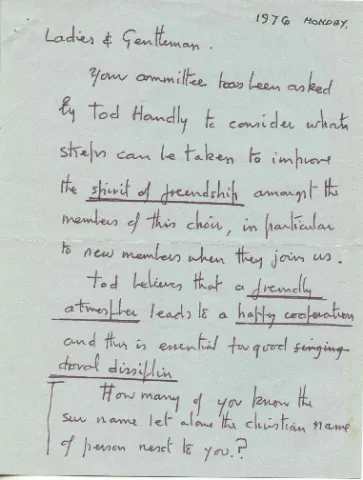 1976 MONDAY.
Ladies & Gentleman.
Your committee has been asked
by Tod Handly to consider what
steps can be taken to improve
the spirit of freindship amongst the
members of this choir, in particular
to new members when they join us.
Tod believes that a freindly
atmospher leads to a happy cooperation
and this is essential for good singing
choral dissiplin
How many of you know the
sur name let alone the christian name
of person next to you.?